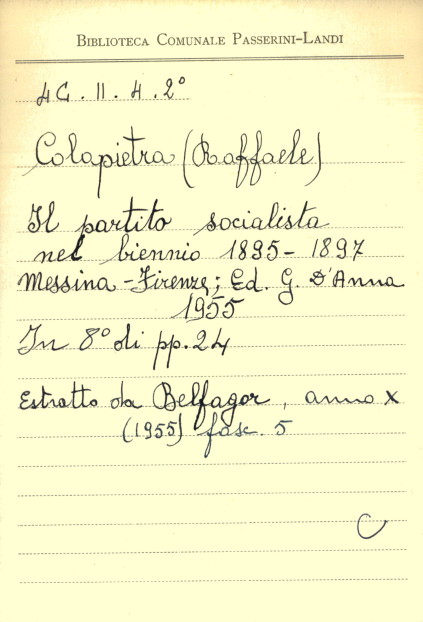 BIBLIOTECA COMUNALE PASSERINI-LANDI
4G.II.4.2°
Colapietra (Raffaele)
Il partito socialista
nel biennio 1895-1897
Messina-Firenze; Ed. G. D'Anna
1955
In 8° di pp. 24
Estratto da Belfagor, anno X
(1955) fasc. 5
C